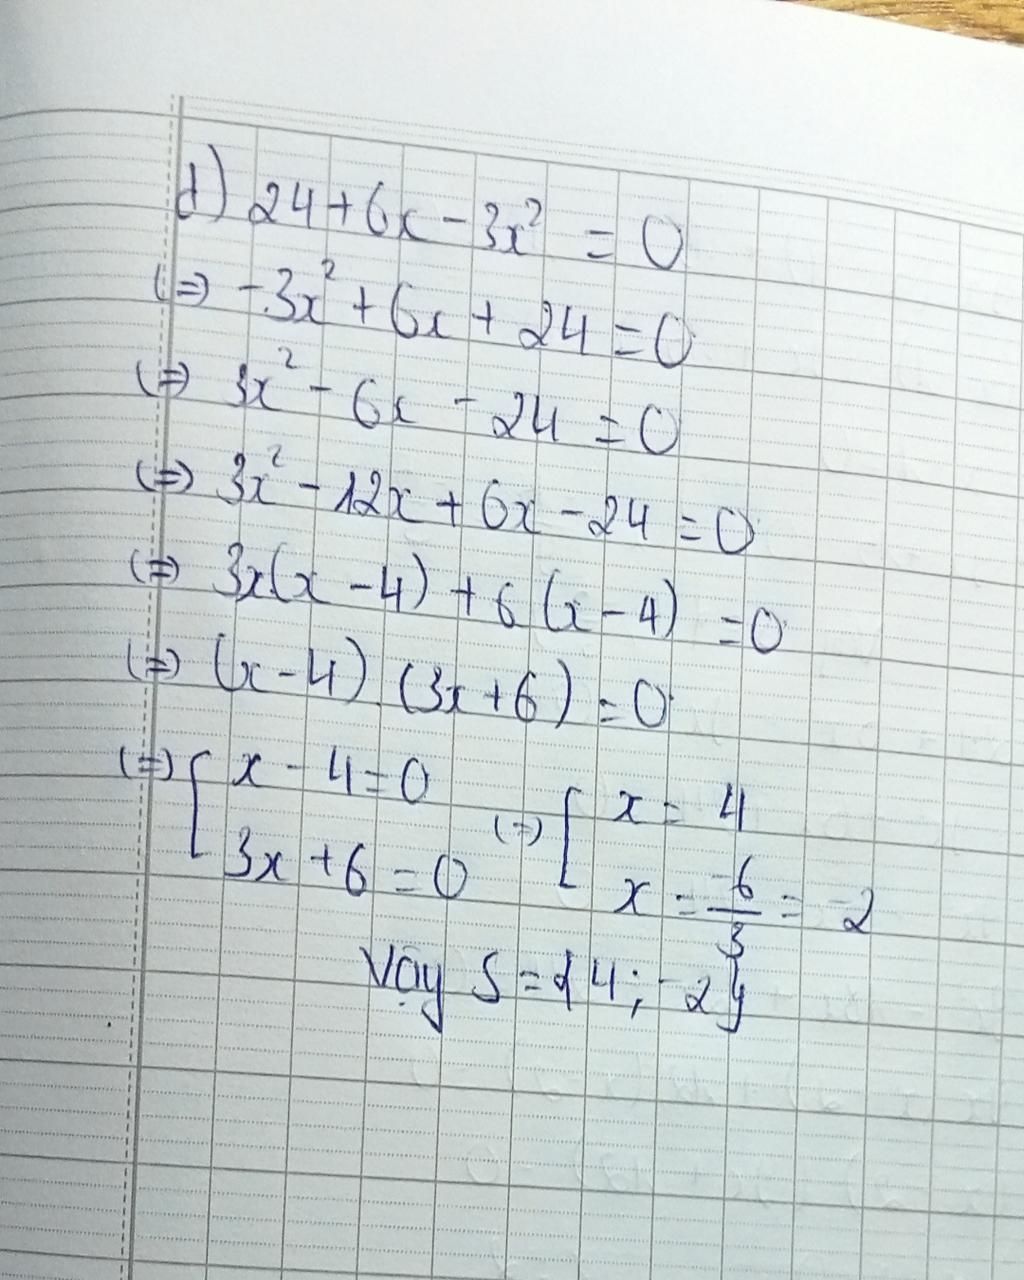 d) 24 + 6x - 3x² = 0
(=) -3x² + 6x + 24 = 0
(=) 3x² - 6x - 24 = 0
(=) 3x² - 12x + 6x - 24 = 0
(=) 3x(x - 4) + 6 (x - 4) = 0
(=) (x - 4) . (3x + 6) = 0
(=) [ x - 4 = 0 (=) [ x = 4
3x + 6 = 0 x = -6/3 = -2
Vậy S = {4; -2}